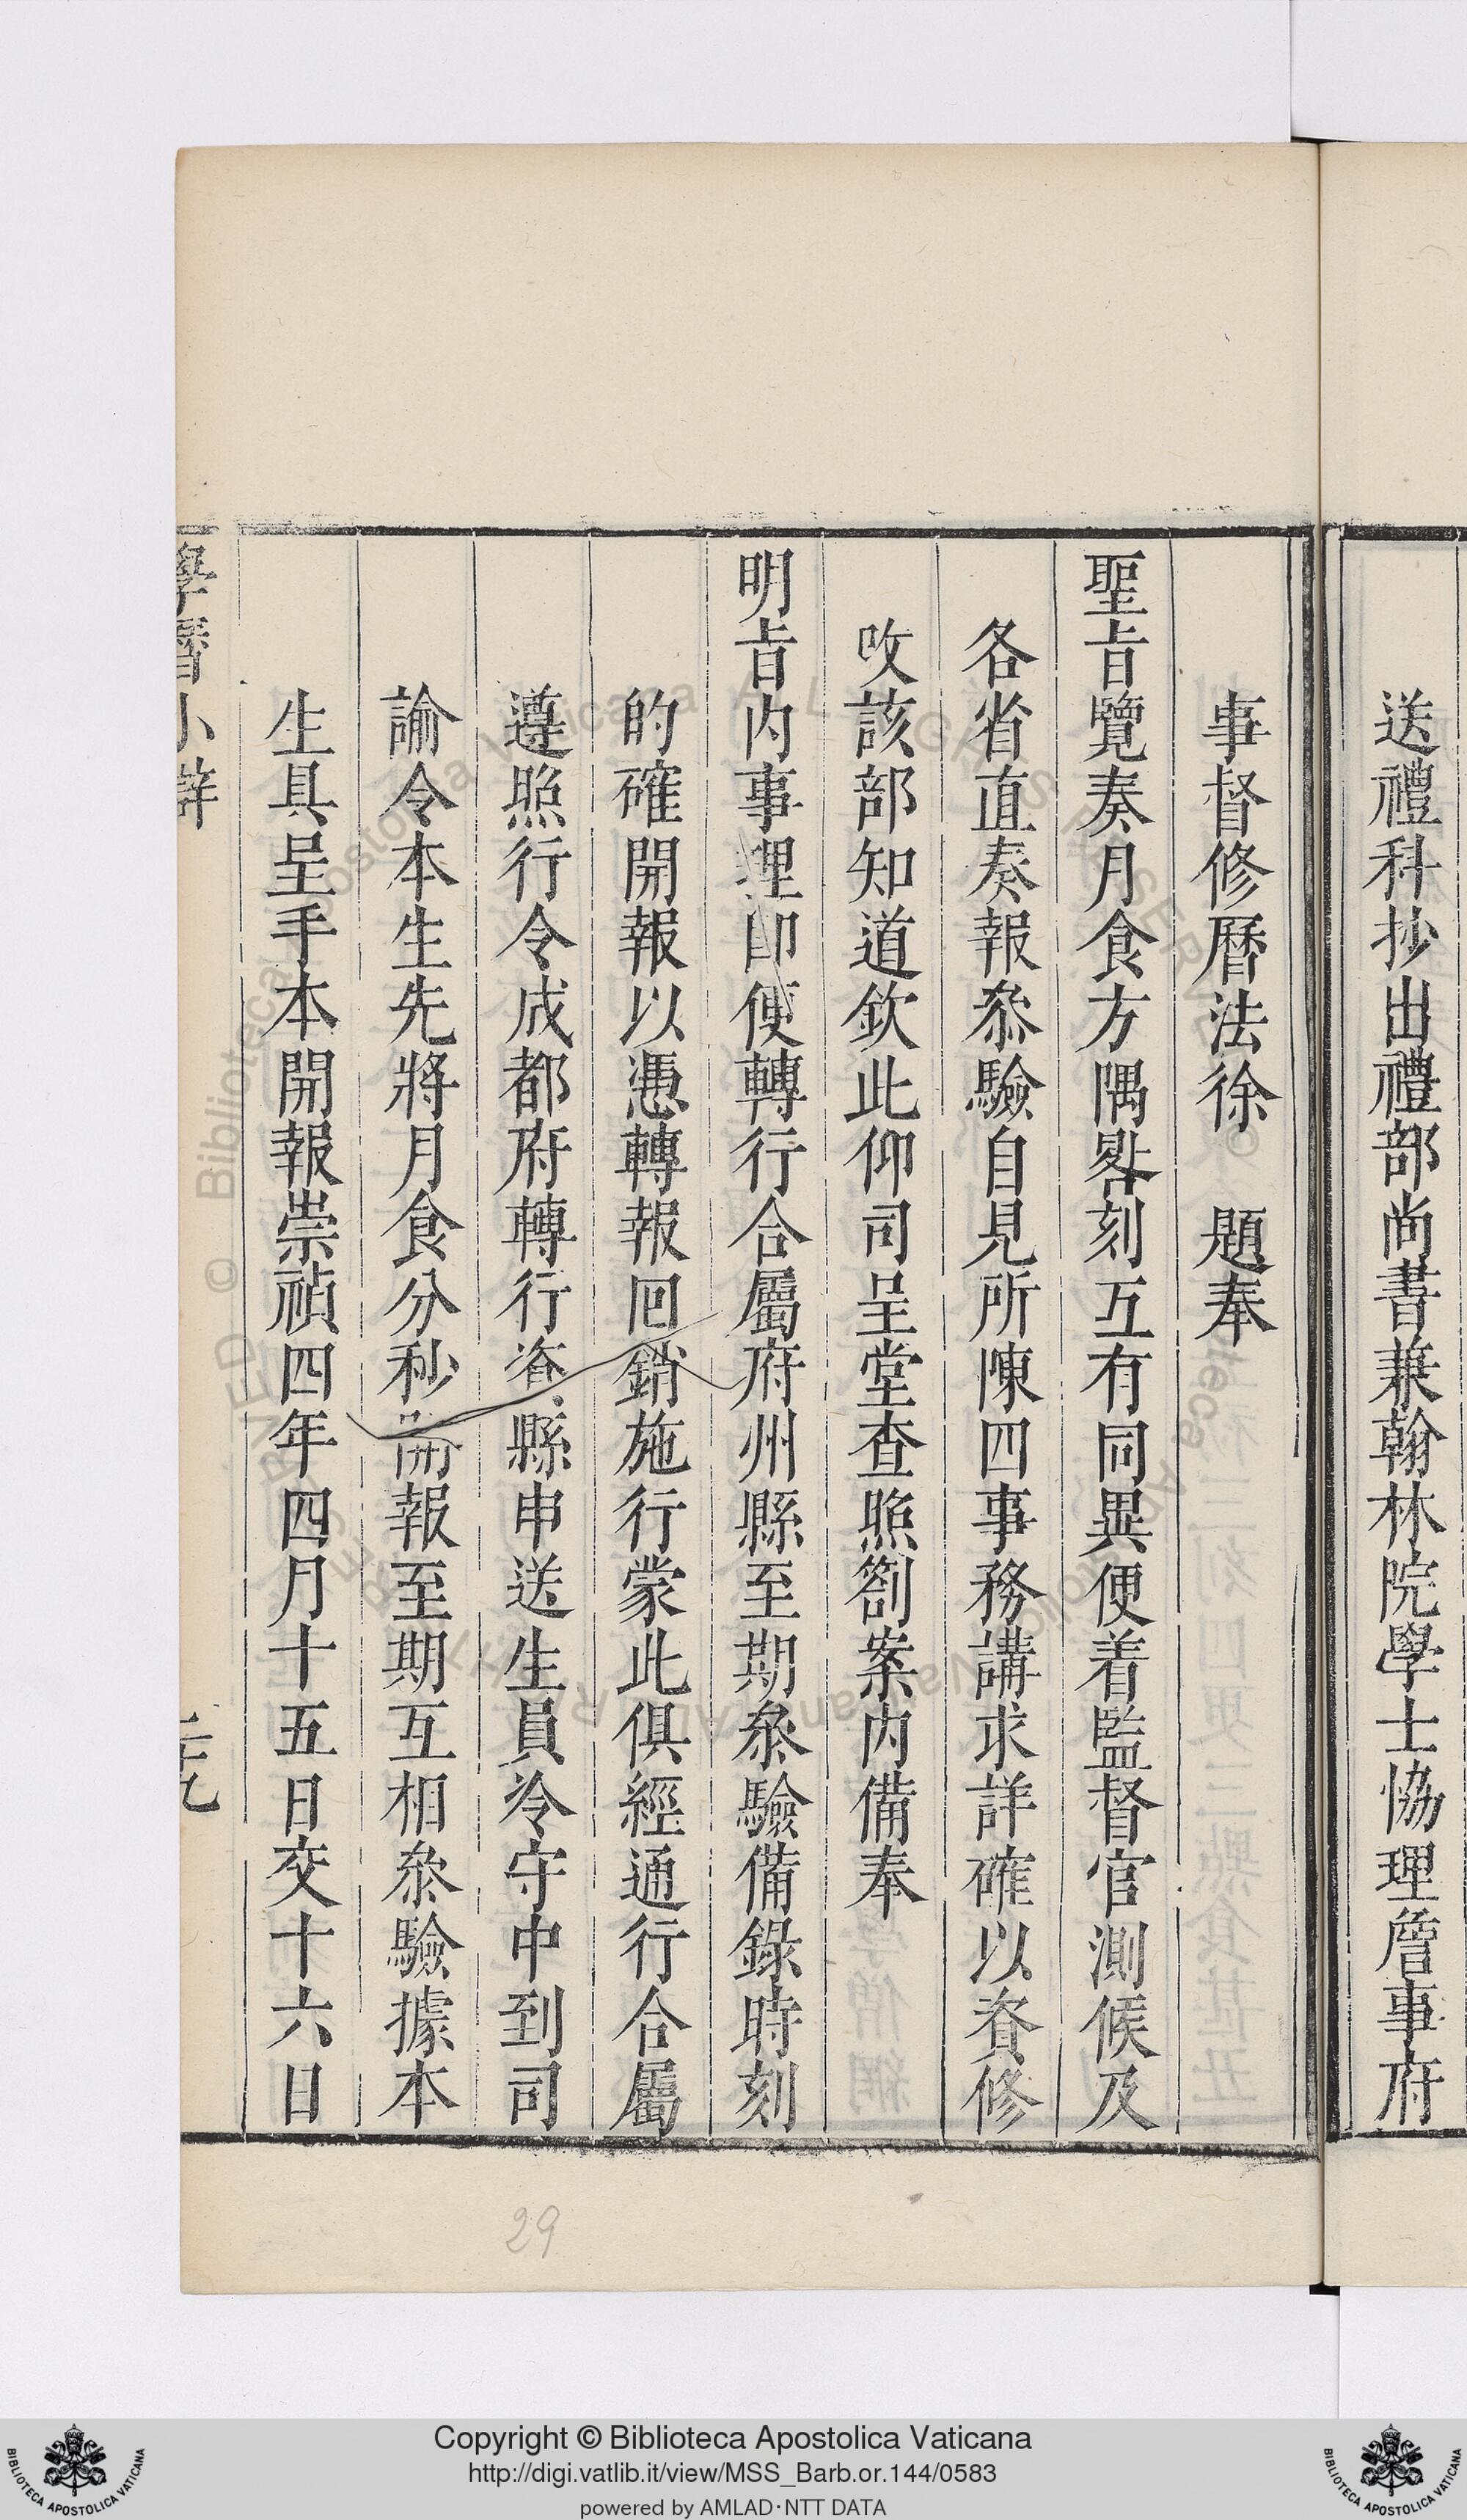 送禮科抄出禮部尚書兼翰林院學士協理詹事府
事督修曆法徐　題奉
聖旨覽奏月食方隅晷刻互有同異便着監督官測候及
各省直奏報叅驗自見所陳四事務講求詳確以資修
攺該部知道欽此仰司呈堂查照劄案內備奉
明旨內事理卽便轉行合屬府州縣至期叅驗備錄時刻
的確開報以憑轉報囘銷施行蒙此俱經通行合屬
遵照行令成都府轉行資縣申送生員冷守中到司
諭令本生先將月食分秒開報至期互相叅驗據本
生具呈手本開報崇禎四年四月十五日交十六日
學曆小辯
二十九
29
Copyright © Biblioteca Apostolica Vaticana
http://digi.vatlib.it/view/MSS_Barb.or.144/0583
powered by AMLAD·NTT DATA
BIBLIOTECA APOSTOLICA VATICANA
BIBLIOTECA APOSTOLICA VATICANA